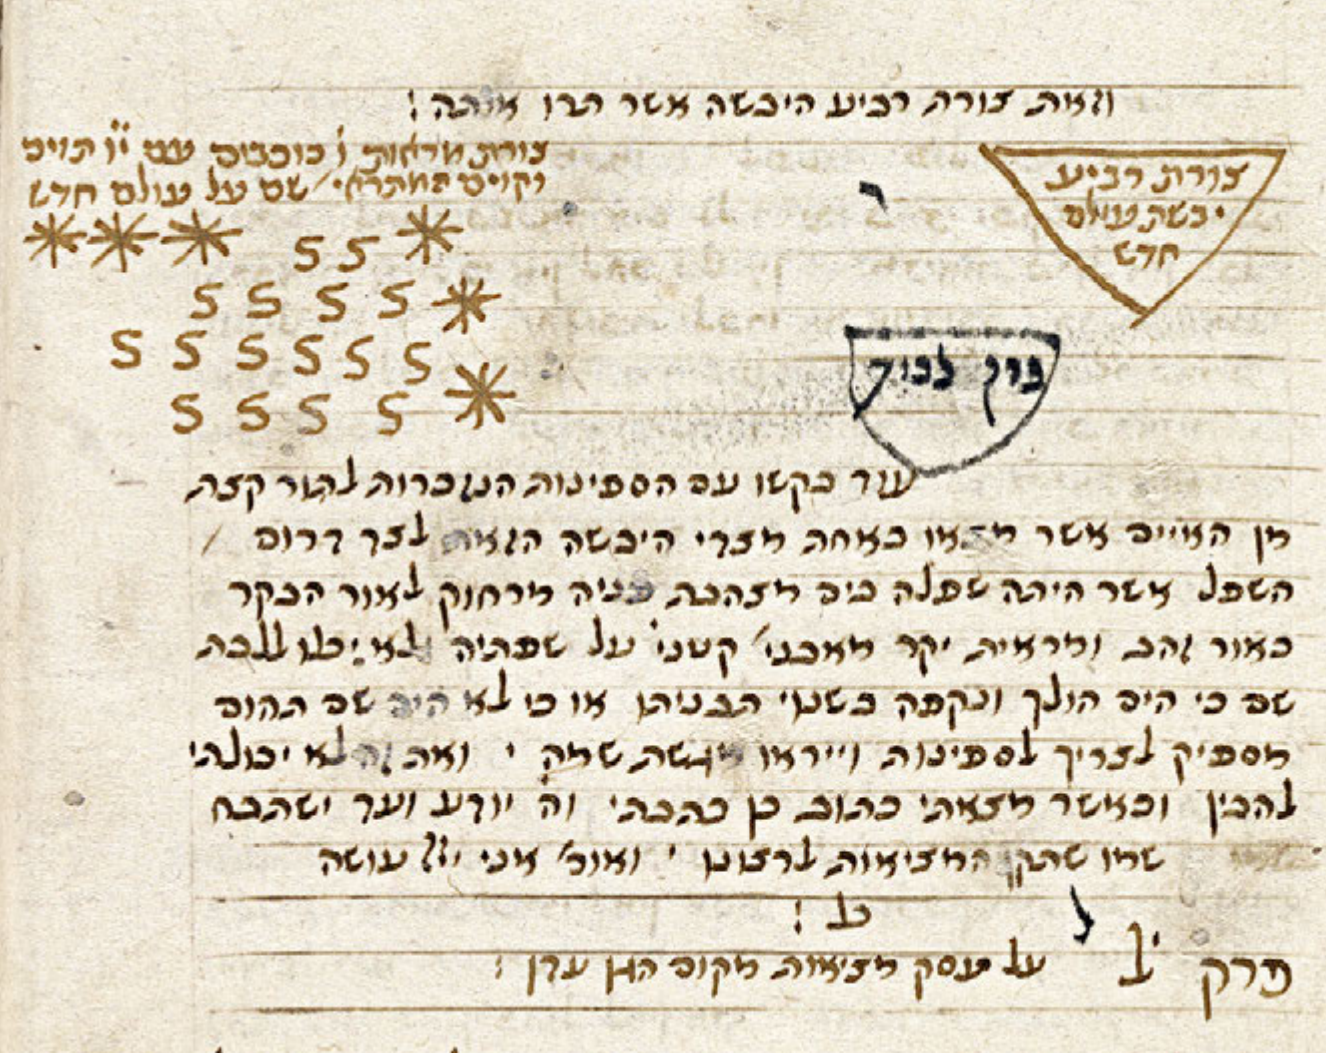 וזאת צורת רביע היבשה אשר תרו אותה :
צורת מראות ו' כוכבים עם י"ו תוים
וקוים המתראי' שם על עולם חדש
צורת רביע
יבשת עולם
חדש
S S
S S S S
S S S S S S
S S S S
בין לבין
עוד בקשו עם הספינות הנזכרות לתור קצת
מן האיים אשר מצאו באחת מצדי היבשה הזאת לצד דרום
השפל אשר היתה שפלה בים מצהבת פניה מרחוק לאור הבקר
כאור זהב ומראית יקר מאבני' קטני' על שפתיה ולא יכלו ללכת
שם כי הים הולך ונקפה בשנוי תבניתו או כי לא היה שם תהום
מספיק לצריך לספינות וייראו מגשת שמה ואת זה לא יכולתי
להבין וכאשר מצאתי כתוב כן כתבתי וה' יודע ועד ישתבח
שמו שתקן המציאות לרצונו ואומ' אני ייי עושה
כל :
פרק ל' על עסק מציאות מקום הגן עדן :